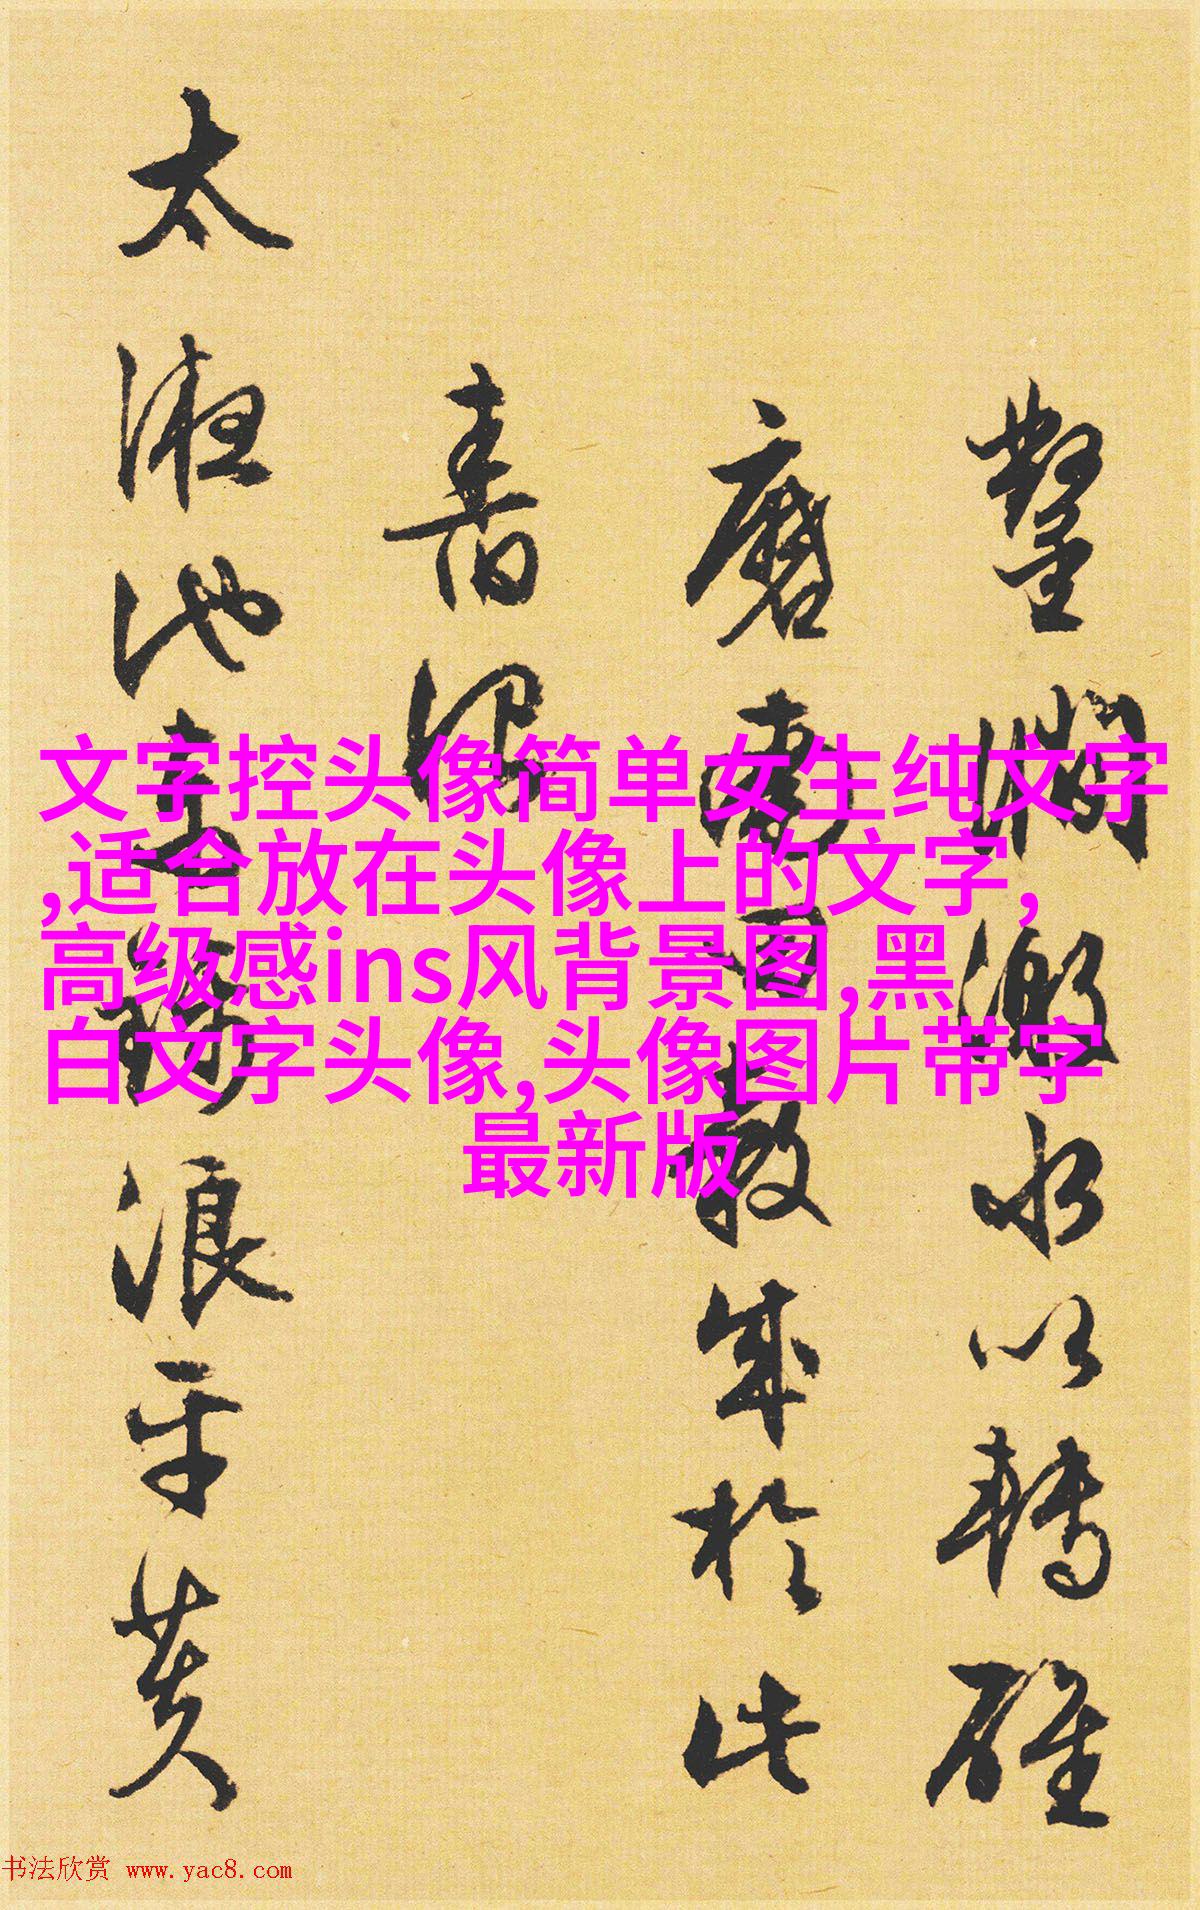 鑿澗激水以轉碓
磨教成於此
太液池浪平黄
文字控头像简单女生纯文字
,适合放在头像上的文字,
高级感ins风背景图,黑
白文字头像,头像图片带字
最新版
书法欣赏 www.yac8.com